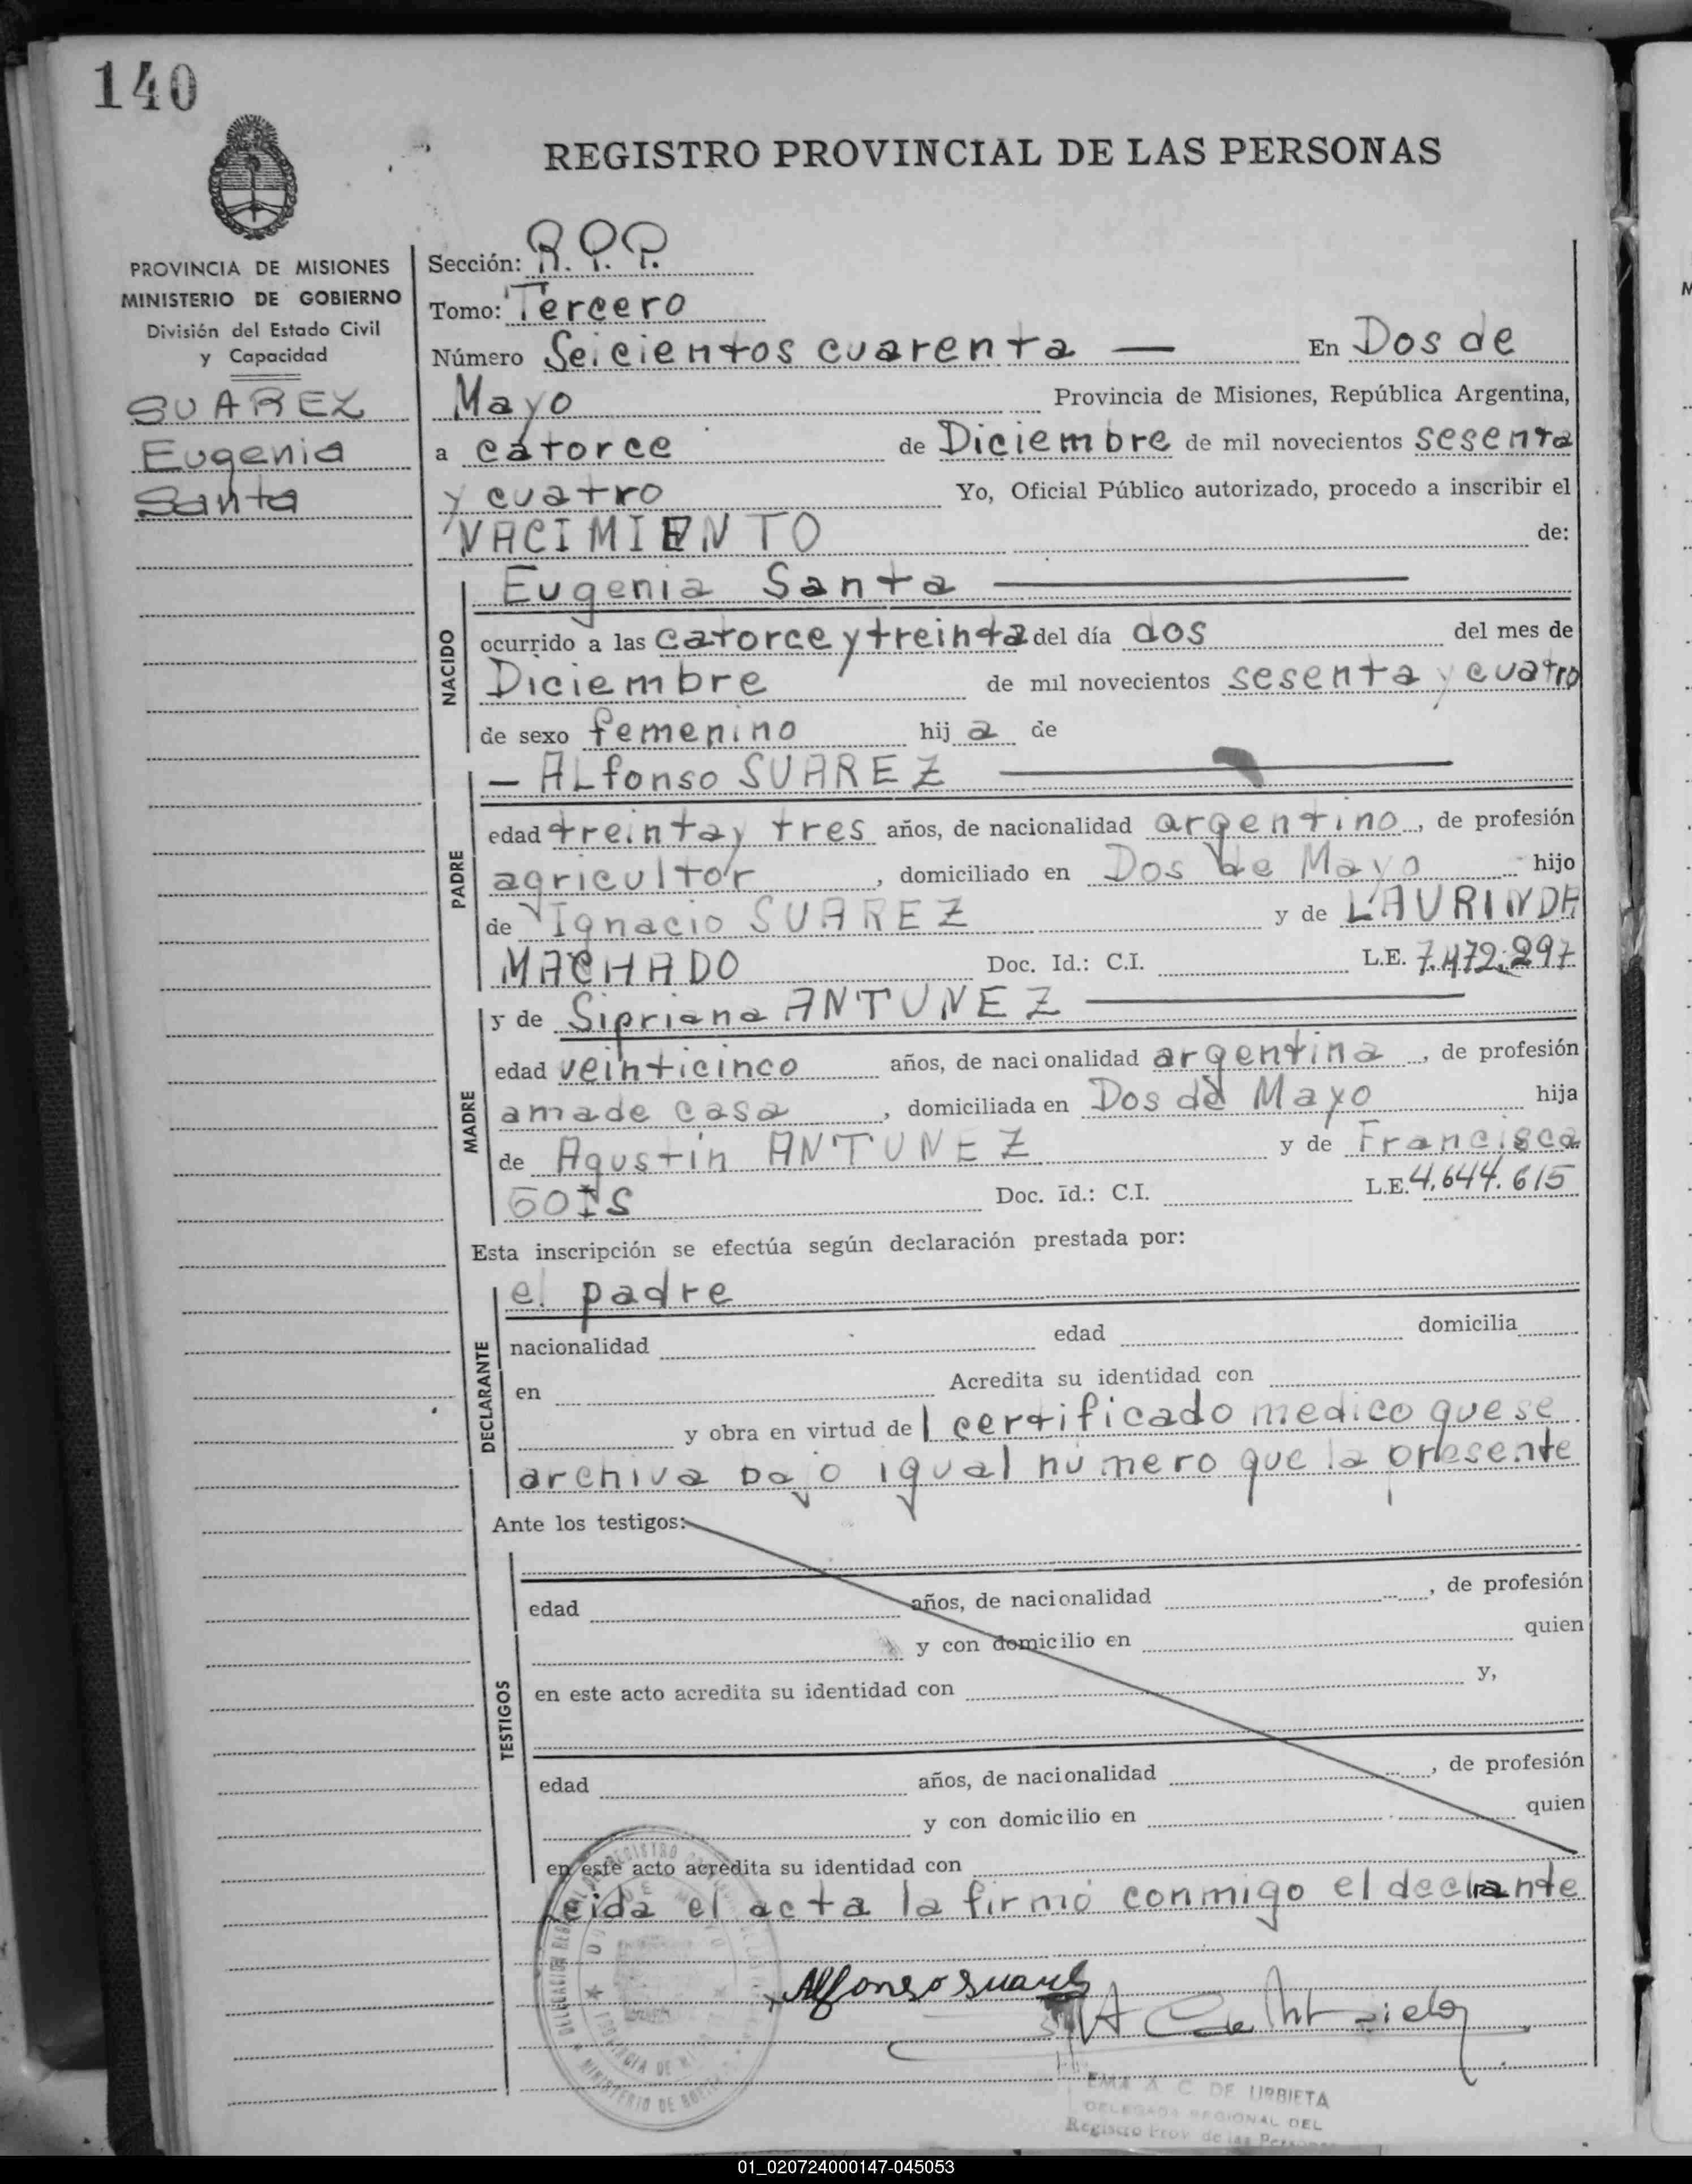 140
REGISTRO PROVINCIAL DE LAS PERSONAS
PROVINCIA DE MISIONES
MINISTERIO DE GOBIERNO
División del Estado Civil
y Capacidad
SUAREZ
Eugenia
Santa
Sección: R.P.P.
Tomo: Tercero
Número Seicientos cuarenta — En Dos de
Mayo Provincia de Misiones, República Argentina,
a catorce de Diciembre de mil novecientos sesenta
y cuatro Yo, Oficial Público autorizado, procedo a inscribir el
NACIMIENTO de:
NACIDO
Eugenia Santa
ocurrido a las catorce y treinta del día dos del mes de
Diciembre de mil novecientos sesenta y cuatro
de sexo femenino hij a de
PADRE
— ALfonso SUAREZ
edad treinta y tres años, de nacionalidad argentino, de profesión
agricultor, domiciliado en Dos de Mayo hijo
de Ignacio SUAREZ y de LAURINDA
MACHADO Doc. Id.: C.I. L.E. 7.472.297
MADRE
y de Sipriana ANTUNEZ
edad veinticinco años, de nacionalidad argentina, de profesión
ama de casa, domiciliada en Dos de Mayo hija
de Agustin ANTUNEZ y de Francisca
Doc. Id.: C.I. L.E. 4.644.615
Esta inscripción se efectúa según declaración prestada por:
DECLARANTE
el padre
nacionalidad edad domicilia
en Acredita su identidad con
y obra en virtud de 1 certificado medico que se
archiva bajo igual numero que la presente
Ante los testigos:
TESTIGOS
edad años, de nacionalidad, de profesión
y con domicilio en quien
en este acto acredita su identidad con y,
edad años, de nacionalidad, de profesión
y con domicilio en quien
en este acto acredita su identidad con
Leida el acta la firmó conmigo el declrante
Alfonso Suarez
EMA A. C. DE URBIETA
DELEGADA REGIONAL DEL
Registro Prov. de las Personas
01_020724000147-045053